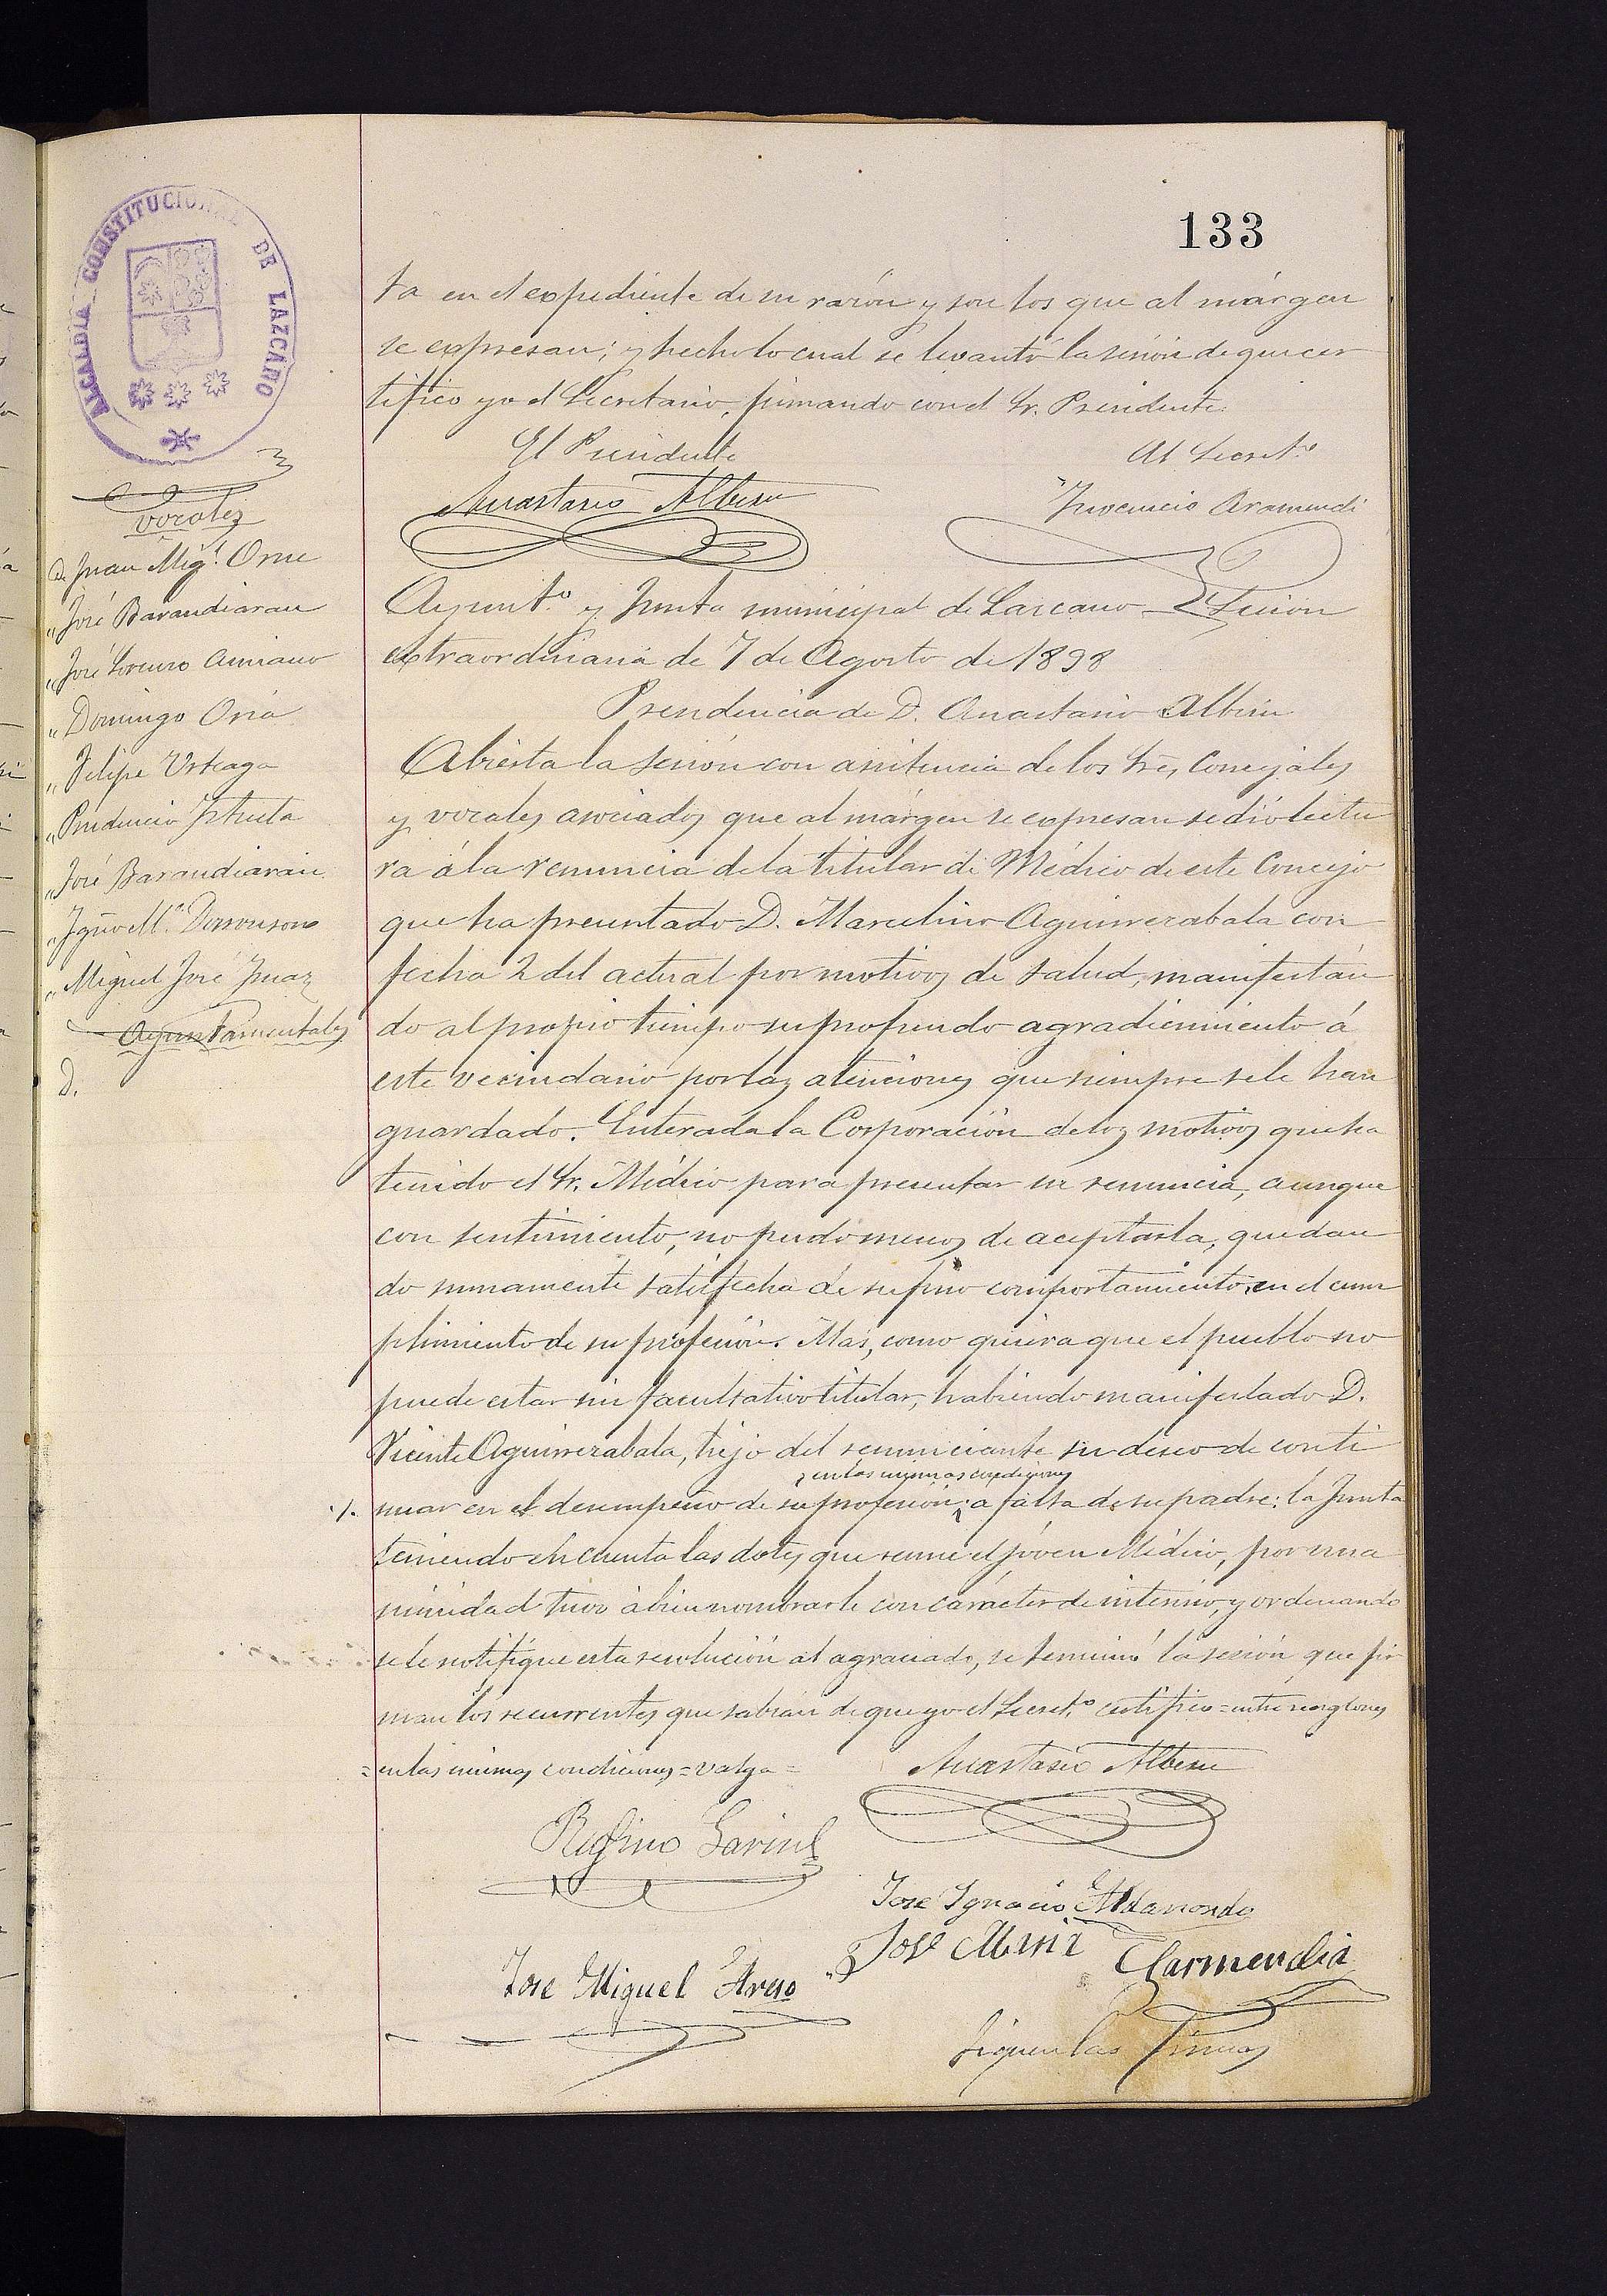 133
ALCALDIA CONSTITUCIONAL DE LAZCANO
ta en el expediente de su razón y son los que al márgen
se expresan; y hecho lo cual se levantó la sesión de que cer
tifico yo el Secretario, firmando con el Sr. Presidente.
El Presidente
El Secret.º
Anastasio Albisu
Inocencio Aramendi
vocales
D. Juan Mig.l Orue
" José Barandiaran
" José Lorenzo Auniano
" Domingo Oria
" Felipe Urteaga
" Prudencio
" José Barandiaran
" Igno M.ª Dorronsoro
" Miguel José Imaz
Ayuntamentales
D.
Ayunt.º y Junta municipal de Lazcano Sesión
extraordinaria de 7 de Agosto de 1898
Presidencia de D. Anastasio Albisu
Abierta la sesión con asistencia de los Sres Concejales
y vocales asociados que al márgen se expresan se dió lectu
ra á la renuncia de la titular de Médico de este Concejo
que ha presentado D. Marcelino Aguirrezabala con
fecha 2 del actual por motivos de salud, manifestan
do al propio tiempo su profundo agradicimiento á
este vecindario por las atenciones que siempre se le han
guardado. Enterada la Corporación de los motivos que ha
tenido el Sr. Médico para presentar su renuncia, aunque
con sentimiento, no pudo menos de aceptarla, quedan
do sumamente satisfecha de su fino comportamiento en el cum
plimiento de su profesión. Mas, como quiera que el pueblo no
puede estar sin facultativo titular, habiendo manifestado D.
Vicente Aguirrezabala, hijo del renunciante su deseo de conti
, en las mismas condiciones
./. nuar en el desempeño de su profesión, a falta de su padre: la Junta
teniendo en cuenta las dotes que reune el jóven Médico, por una
nimidad tuvo á bien nombrarle con carácter de interino, y ordenando
se le notifique esta resolución al agraciado, se terminó la sesión que fir
man los recurrentes que sabian de que yo el Secret.º certifico = entre renglones
= en las mismas condiciones = valga =
Anastasio Albisu
Rufino Garin
Jose Ignacio Aldanondo
José Mari Garmendia
Jose Miguel Areso
Siguen las firmas